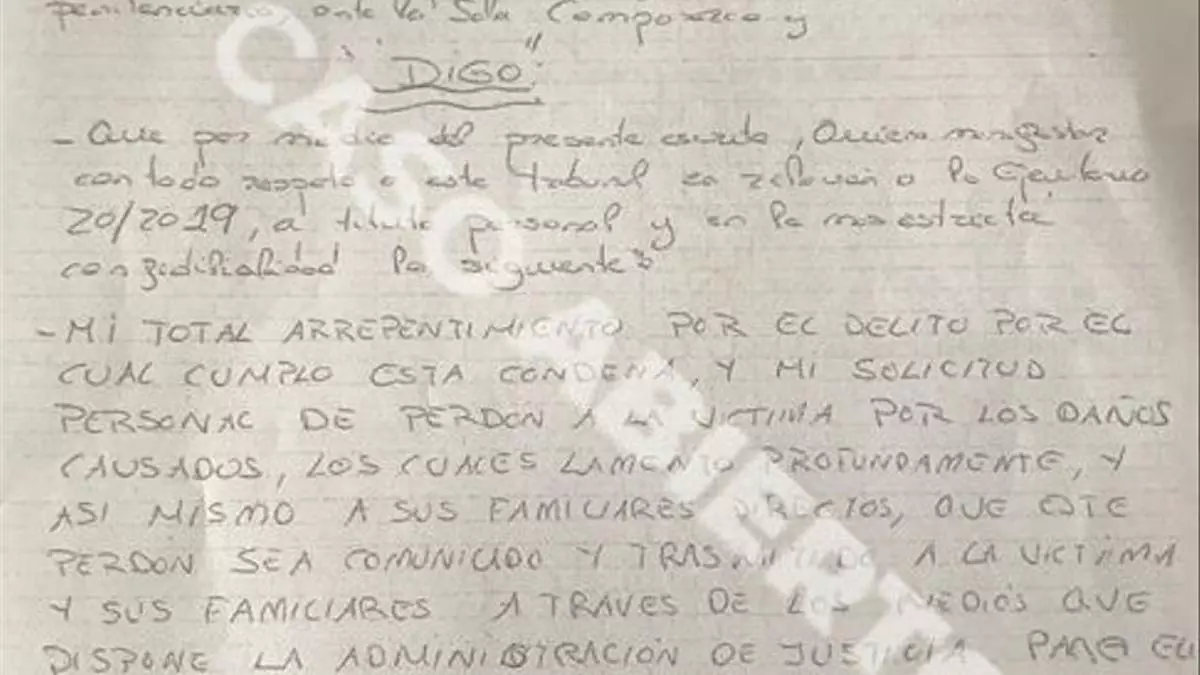 penitenciario, ante la Sala Comparezco y
"DIGO":
- Que por medio del presente escrito, Quiero manifestar
con todo respeto a este tribunal en relación a la Ejecutoria
20/2019, a titulo personal y en la mas estricta
confidencialidad lo siguiente:
- MI TOTAL ARREPENTIMIENTO POR EL DELITO POR EL
CUAL CUMPLO ESTA CONDENA, Y MI SOLICITUD
PERSONAL DE PERDON A LA VICTIMA POR LOS DAÑOS
CAUSADOS, LOS CUALES LAMENTO PROFUNDAMENTE, Y
ASI MISMO A SUS FAMILIARES DIRECTOS, QUE ESTE
PERDON SEA COMUNICADO Y TRASMITIDO A LA VICTIMA
Y SUS FAMILIARES A TRAVES DE LOS MEDIOS QUE
DISPONE LA ADMINISTRACIÓN DE JUSTICIA PARA ELL
CASO ABIERTO